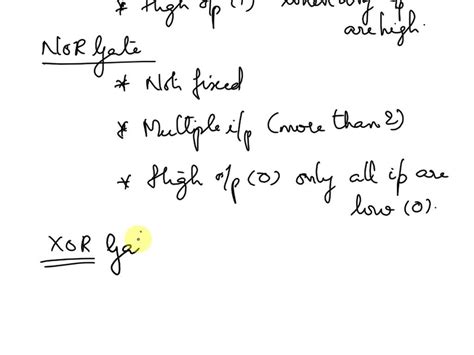 * High o/p (1) when any i/p
are high.
NOR Gate
* Not fixed
* Multiple i/p (more than 2)
* High o/p (0) only all i/p are
low (0).
XOR Ga